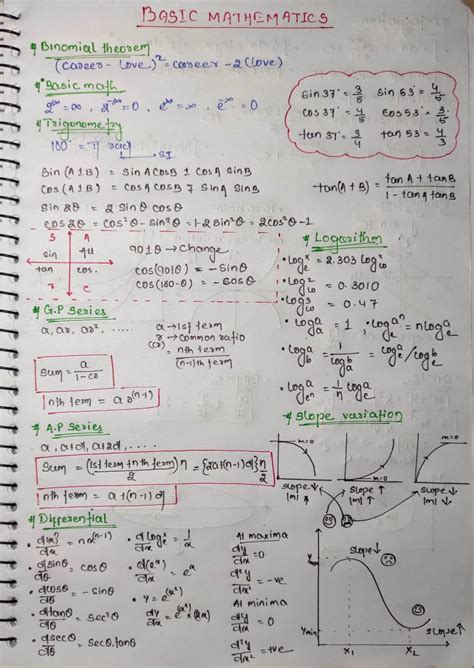 BASIC MATHEMATICS
* Binomial theorem
(career - Love)² = career - 2 (love)
* Basic math
2^∞ = ∞ , 2^-∞ = 0 , e^∞ = ∞ , e^-∞ = 0
* Trigonometry
180° = π rad
SI
sin 37° = 3/5 sin 53° = 4/5
cos 37° = 4/5 cos 53° = 3/5
tan 37° = 3/4 tan 53° = 4/3
Sin (A±B) = SinA CosB ± CosA SinB
Cos (A±B) = CosA CosB ∓ SinA SinB
tan(A+B) = tanA + tanB / 1 - tanA tanB
Sin 2θ = 2 Sinθ Cosθ
Cos 2θ = Cos²θ - Sin²θ = 1-2 Sin²θ = 2Cos²θ - 1
S A
sin All
tan cos.
T C
90±θ → Change
Cos(90+θ) = -Sinθ
Cos(180-θ) = -Cosθ
* Logarithm
• log_e^x = 2.303 log_10^x
• log_10^2 = 0.3010
• log_10^3 = 0.47
• log_a^a = 1 , log_e^a^n = n log_e^a
• log_b^a = 1/log_a^b = log_e^a / log_e^b
• log_e^n^a = 1/n log_e^a
* G.P Series
a, ar, ar², .....
a → 1st term
r → common ratio
(CR) = nth term / (n-1)th term
Sum = a / 1-CR
nth term = a r^(n-1)
* A.P Series
a, a+d, a+2d, .....
Sum = (1st term + nth term) n / 2 = {2a+(n-1)d} n/2
nth term = a+(n-1)d
* Slope variation
m=0 m=0
slope ↓ |m| ↑
slope ↑ |m| ↑
slope ↑ |m| ↓
* Differential
• dx^n/dx = n x^(n-1)
• d sinθ/dθ = cosθ
• d cosθ/dθ = - Sinθ
• d tanθ/dθ = Sec²θ
• d secθ/dθ = Secθ.tanθ
• d log_e^x/dx = 1/x
• d(e^x)/dx = e^x
• y = e^(x²)
dy/dx = e^(x²) × (2x)
At maxima
dy/dx = 0
d²y/dx² = -ve
At minima
dy/dx = 0
d²y/dx² = +ve
slope ↓
y
ymin
slope ↑
x₁ x₂